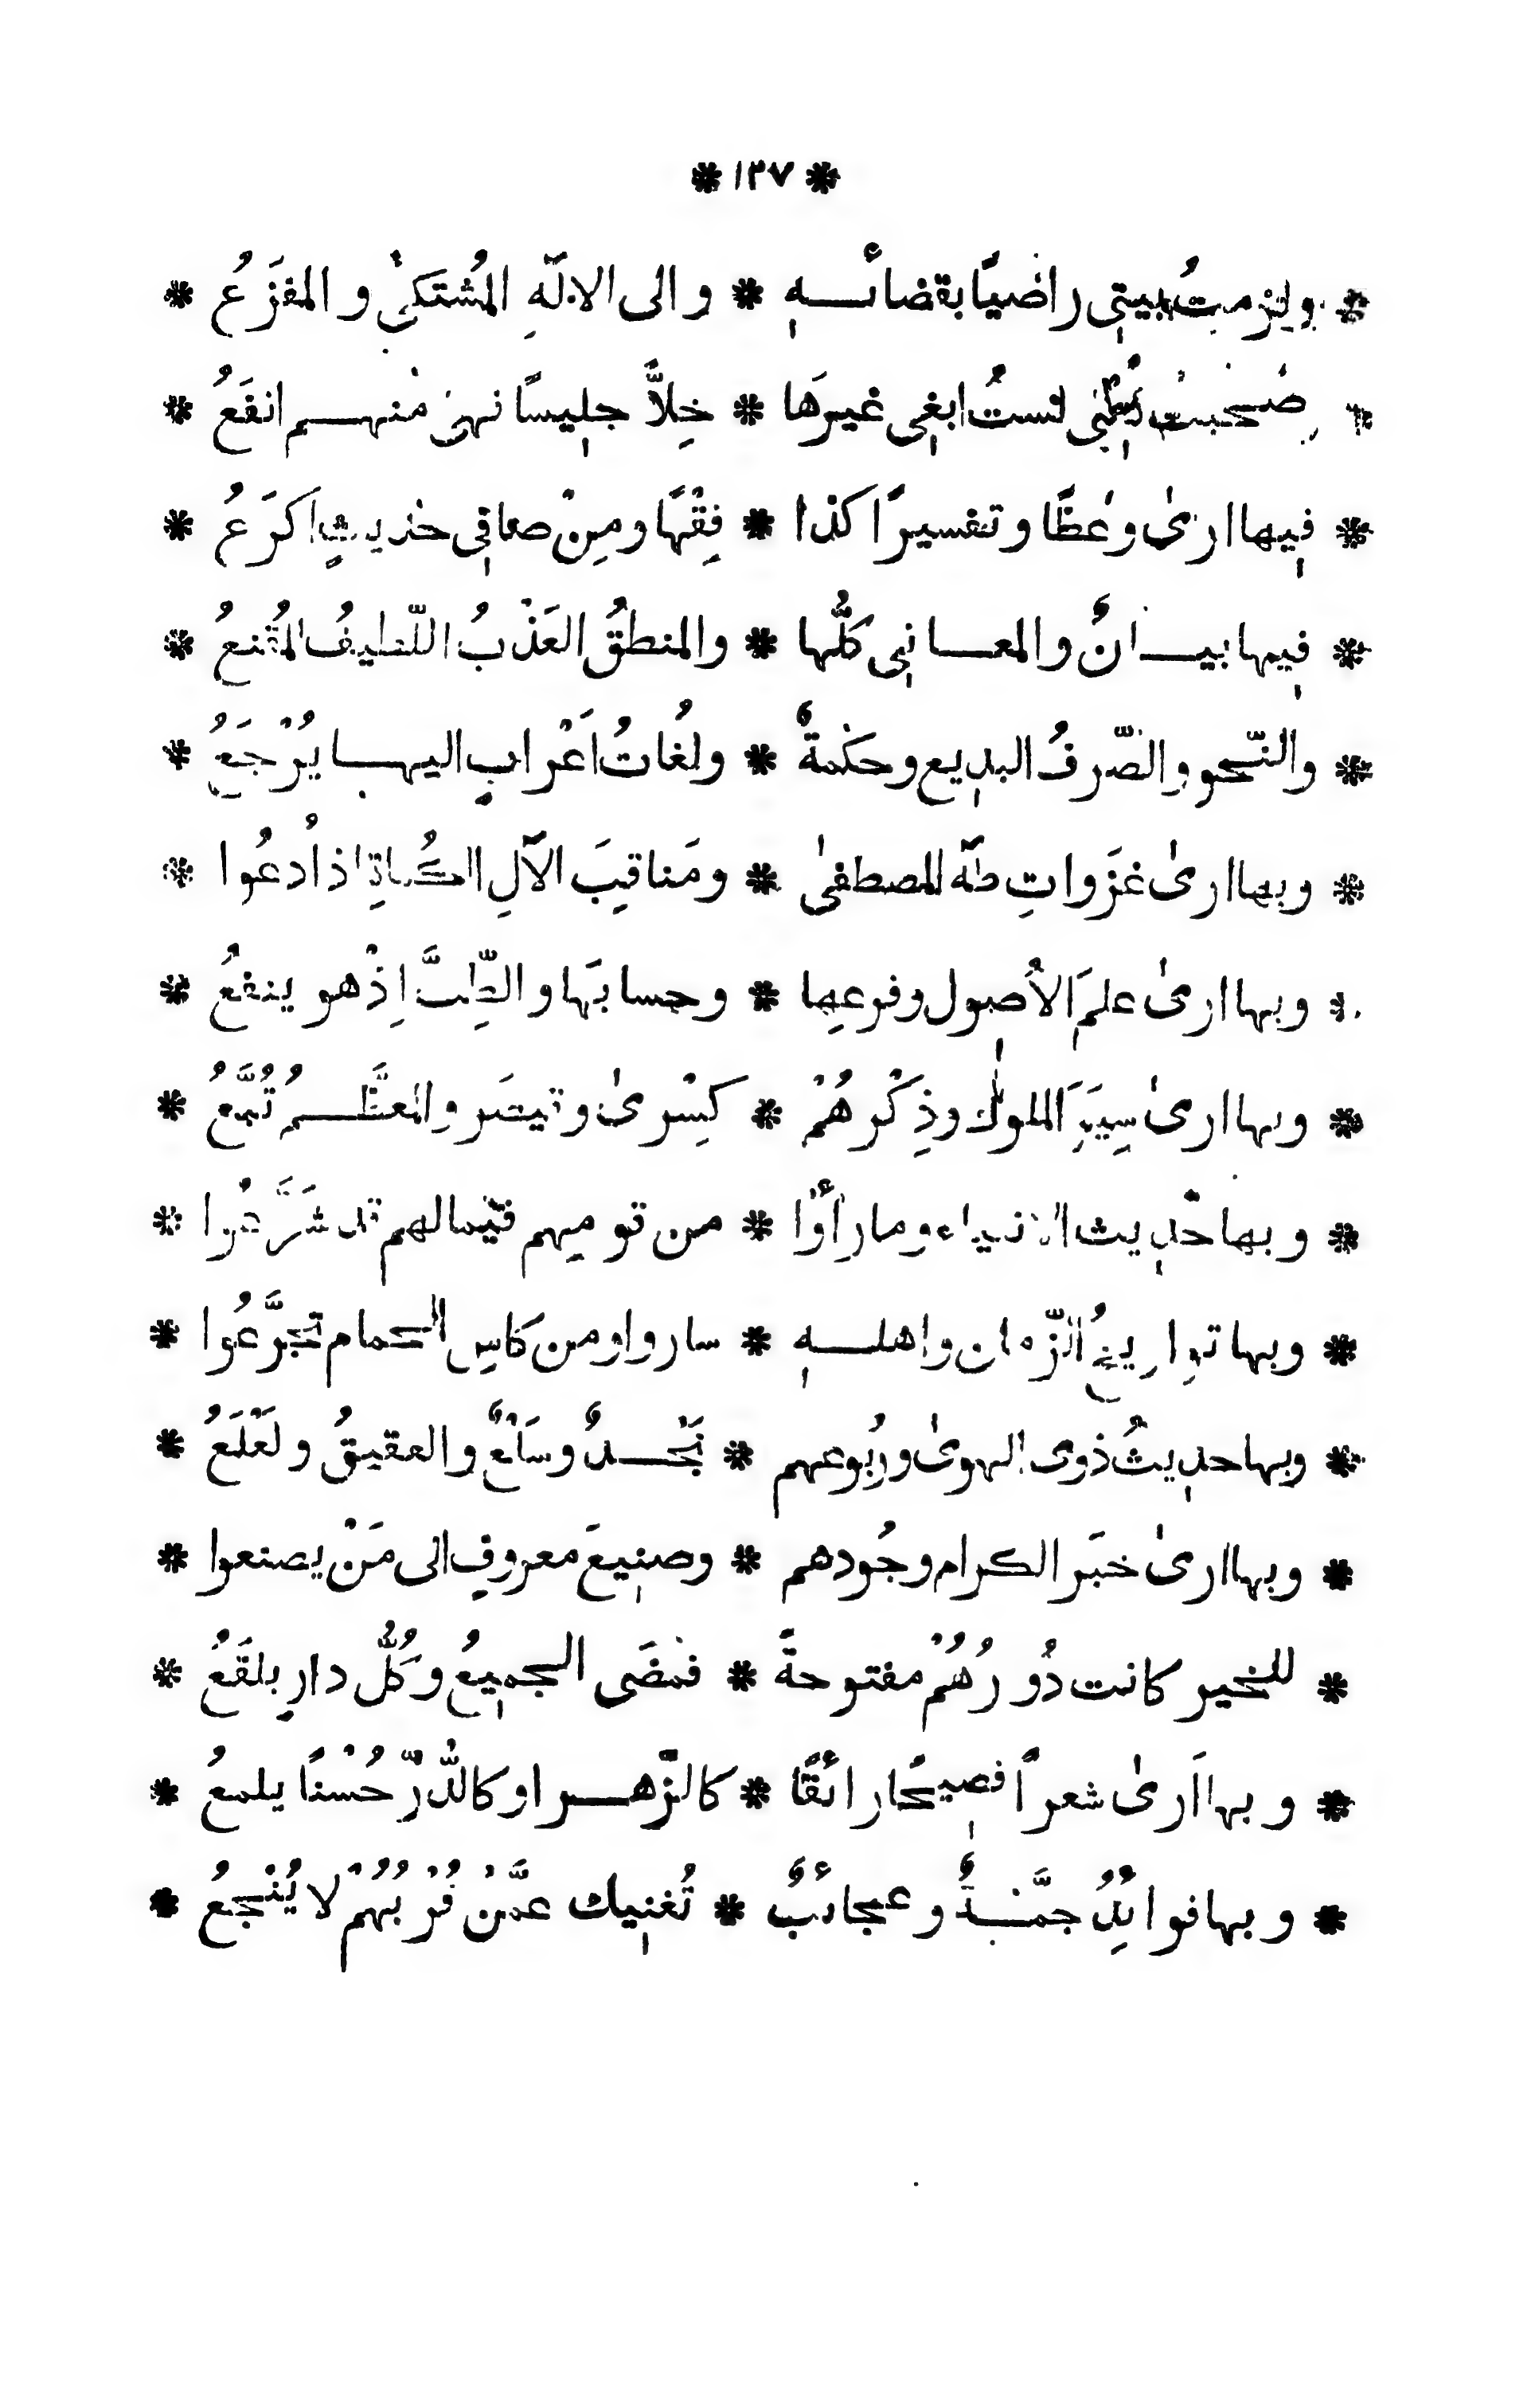 * ١٣٧ *
* ولزمتُ بيتي راضيًا بقضائه * والى الالٰهِ المُشتكىٰ والمفزَعُ *
* وصَحبتُ كتبي لستُ ابغي غيرَها * خِلاًّ جليسًا نهىَ منهم انفَعُ *
* فيها ارىٰ وعظًا وتفسيرًا كذا * فِقْهًا ومِنْ صافي حديثٍ اكرَعُ *
* فيها بيانٌ والمعاني كلُّها * والمنطقُ العَذْبُ اللّطيفُ المُقنعُ *
* والنّحو والصّرفُ البديع وحكمةٌ * ولُغاتُ اَعْرابٍ اليها يُرْجَعُ *
* وبها ارىٰ غزَواتِ طٰهَ المصطفىٰ * ومَناقِبَ الآلِ الكُماةِ اذا اُدعُوا *
* وبها ارىٰ علمَ الاُصول وفرعِها * وحسابَها والطِّبَّ اِذْ هو ينفعُ *
* وبها ارىٰ سِيَرَ الملوك وذِكْرهُمْ * كِسْرىٰ وقيصَر والمعظَّمُ تُبَّعُ *
* وبها حديث الانبياء وما رأَوْا * من قومِهم فيما لهم قد شَرَّعُوا *
* وبها تواريخُ الزّمان واهله * ساروا ومن كاسِ الحمام تجرَّعُوا *
* وبها حديثُ ذوى الهوىٰ ورُبُوعهم * نَجْدٌ وسَلْعٌ والعقيقُ ولَعْلَعُ *
* وبها ارىٰ خبَر الكرام وجُودهم * وصنيعَ معروفٍ الى مَنْ يصنعوا *
* للخير كانت دُورُهُمْ مفتوحةً * فمضَى الجميعُ وكُلُّ دارٍ بلقَعُ *
* وبها اَرىٰ شعرًا فصيحًا رائقًا * كالزّهر او كالدُّرِّ حُسْنًا يلمعُ *
* وبها فوائدُ جمَّةٌ وعجائبٌ * تُغنيك عمَّنْ قُرْبُهُمْ لا يُنْجعُ *